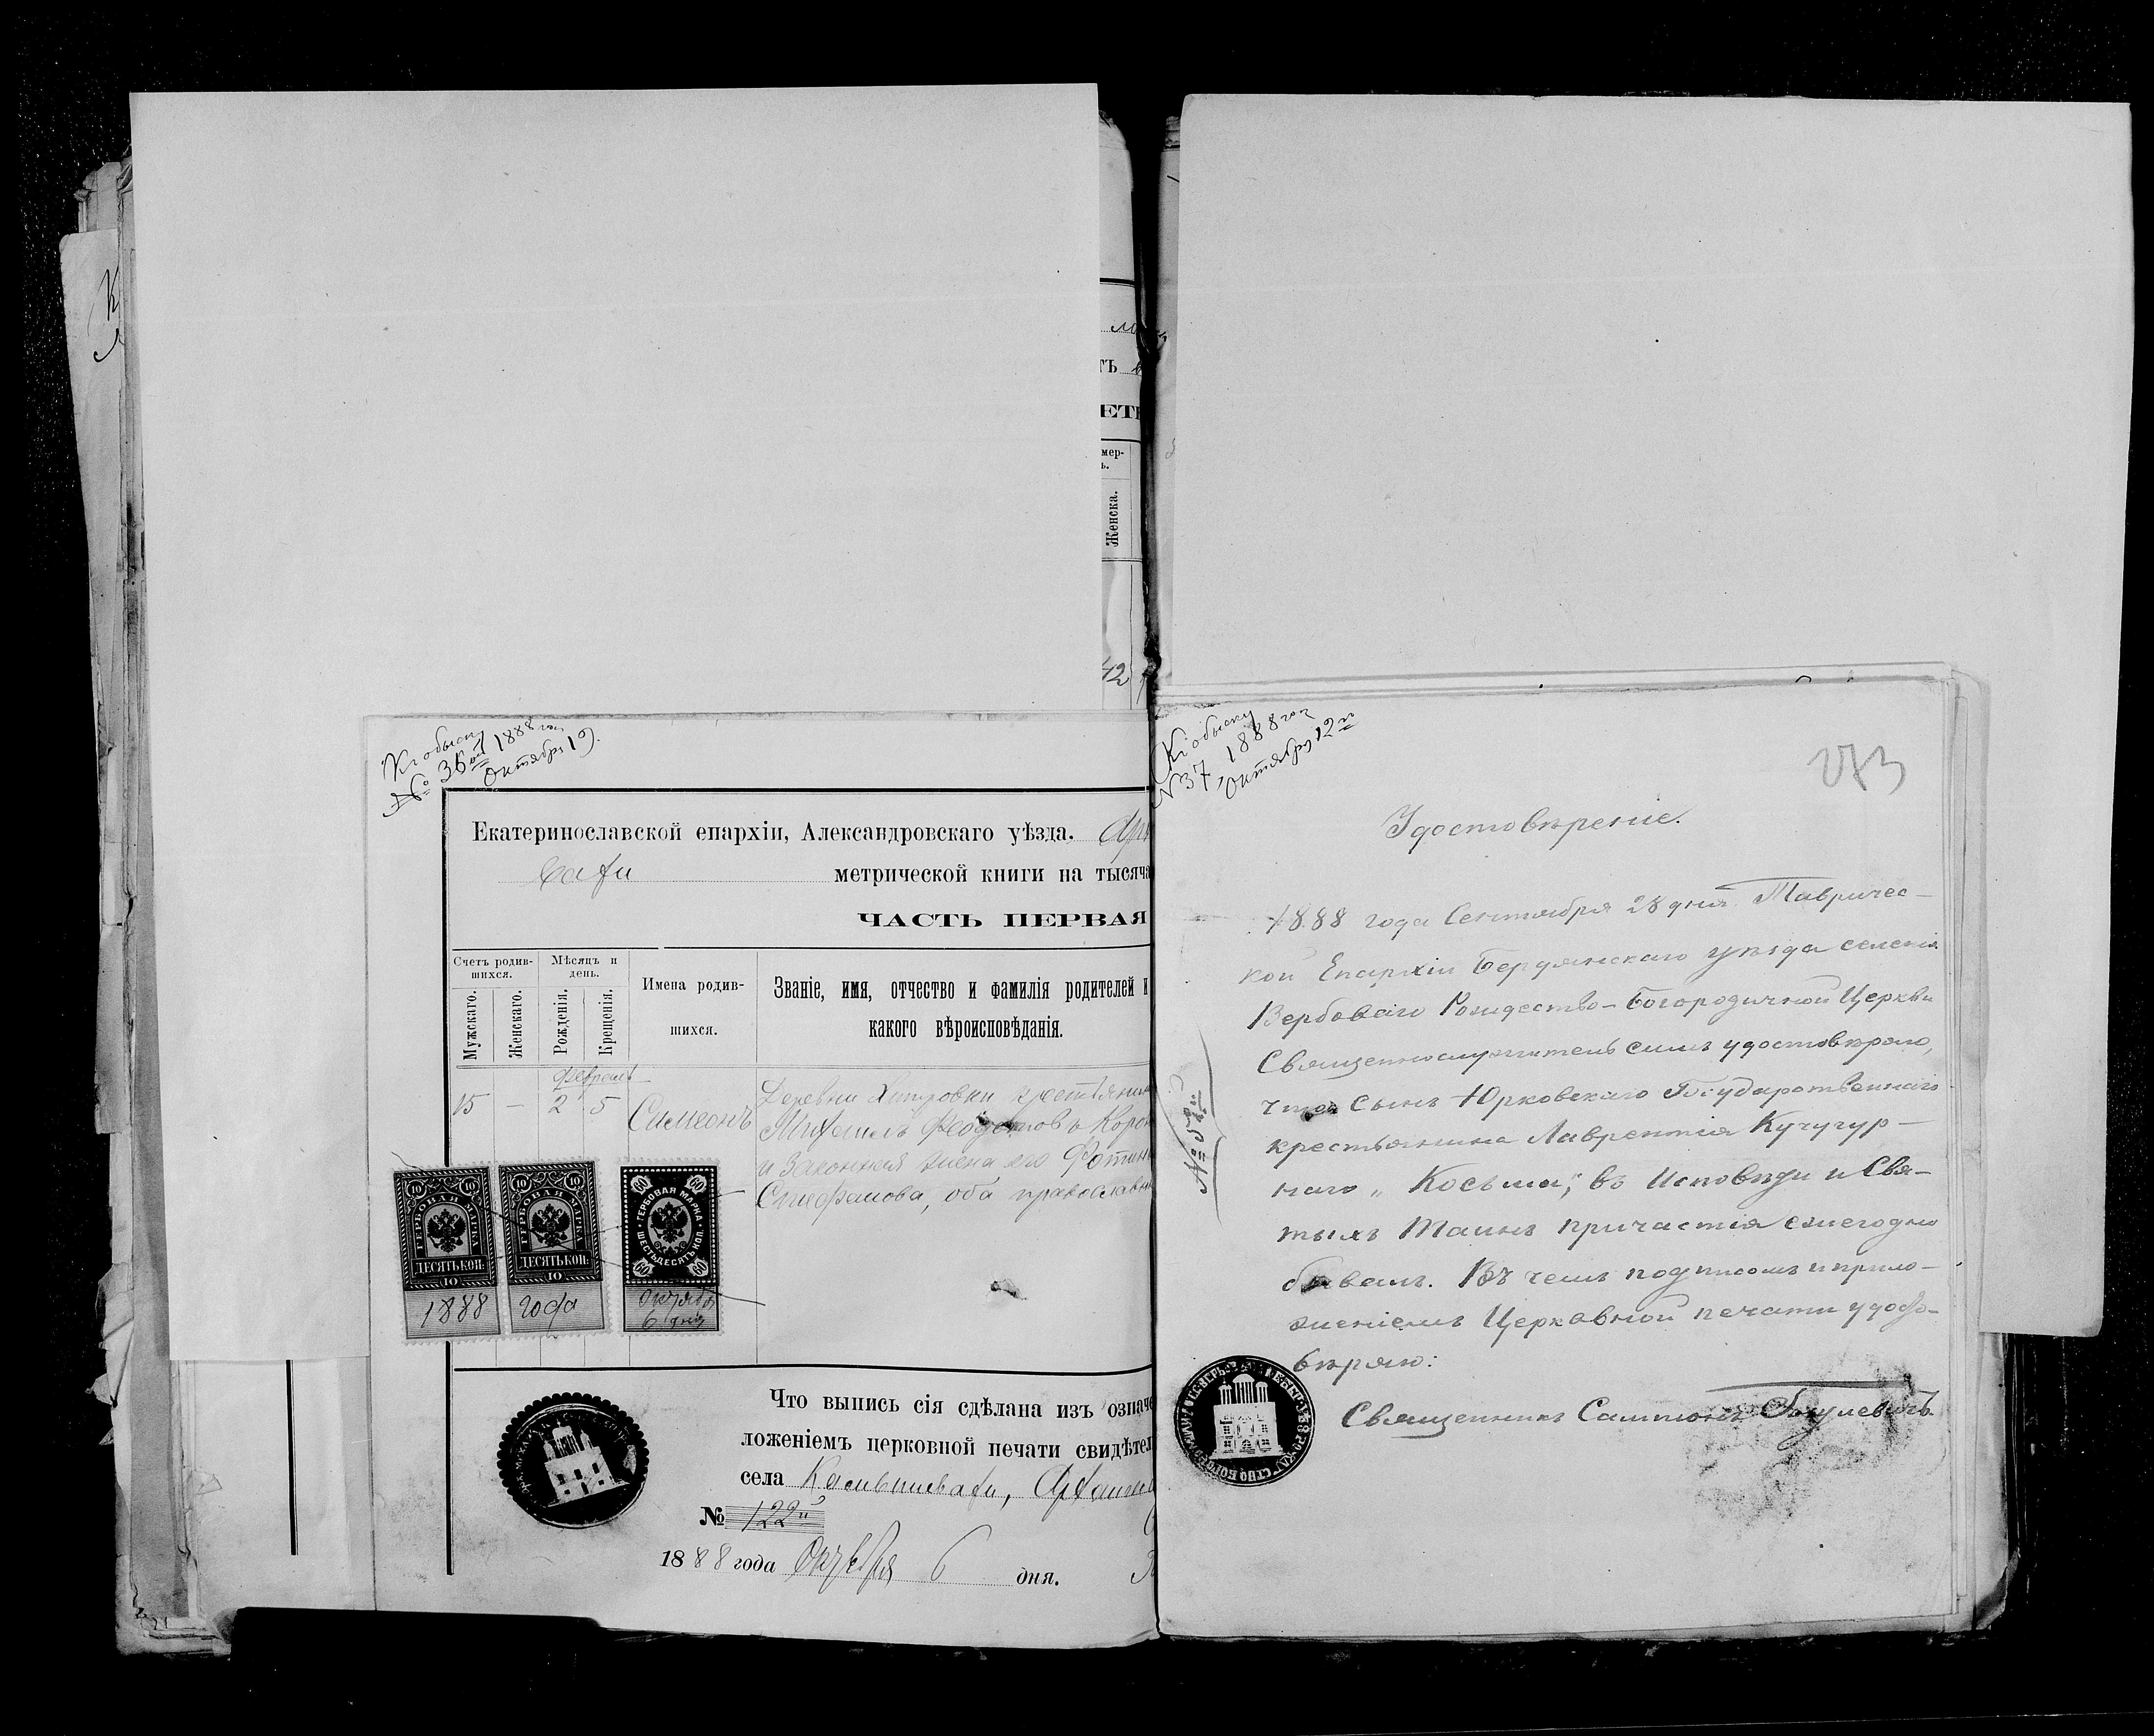 Къ обыску
№ 36ой 1888 год
Октября 19.
Екатеринославской епархіи, Александровскаго уѣзда.
метрической книги на тысяча
ЧАСТЬ ПЕРВАЯ
Счетъ родив-
шихся.
Мужскаго.
Женскаго.
Мѣсяцъ и
день.
Рожденія.
Крещенія.
Имена родив-
шихся.
Званіе, имя, отчество и фамилія родителей и
какого вѣроисповѣданія.
февраль
15 — 2 5
Симеонъ
Деревни Хитровки крестьянинъ
Михаилъ
и законная жена его Фотин
Стефанова, оба православн
ГЕРБОВАЯ МАРКА
10 10
ДЕСЯТЬ КОП:
10
1888
ГЕРБОВАЯ МАРКА
10 10
ДЕСЯТЬ КОП:
10
года
60 60
ГЕРБОВАЯ МАРКА
ШЕСТЬДЕСЯТЪ КОП.
60 60
Октября
6 дня
Что выпись сія сдѣлана изъ означе
ложеніемъ церковной печати свидѣтел
села Камышевахи,
№ 122й
1888 года Октября 6 дня.
мер-
ъ.
Женска.
42
Къ обыску
№37, 1888 год
Октября 12го
273
Удостовѣреніе.
1888 года Сентября 28 дня Тавричес-
кой Епархіи Бердянскаго уѣзда селенія
Вербоваго Рождество-Богородичной Церкви
Священнослужитель симъ удостовѣряю,
что сынъ Юрковскаго Государственнаго
крестьянина Лаврентія Кучугур-
наго „Косьма", въ Исповѣди и Свя-
тыхъ Таинъ причастія ежегодно
бывалъ. Въ чемъ подписомъ и прило-
женіемъ Церковной печати удосто-
вѣряю:
Священникъ Сампсонъ